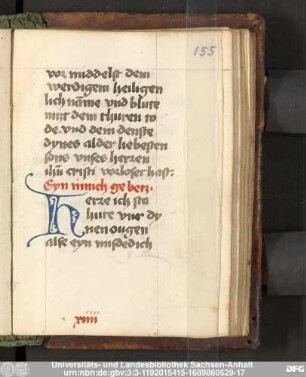 155
vor middelst dem
werdigem heiligen
lich nāme vnd blute
myt dem thuren to
de vnd dem denste
dynes alder liebesten
sons vnses herren
ihū cristi vorloset hast:
Eyn innich gebett.
Herre ich sta
hute vur dy
nen ougen
alse eyn misdedich
xiiii
Universitäts- und Landesbibliothek Sachsen-Anhalt
urn:nbn:de:gbv:3:3-1192015415-1689860529-17
DFG